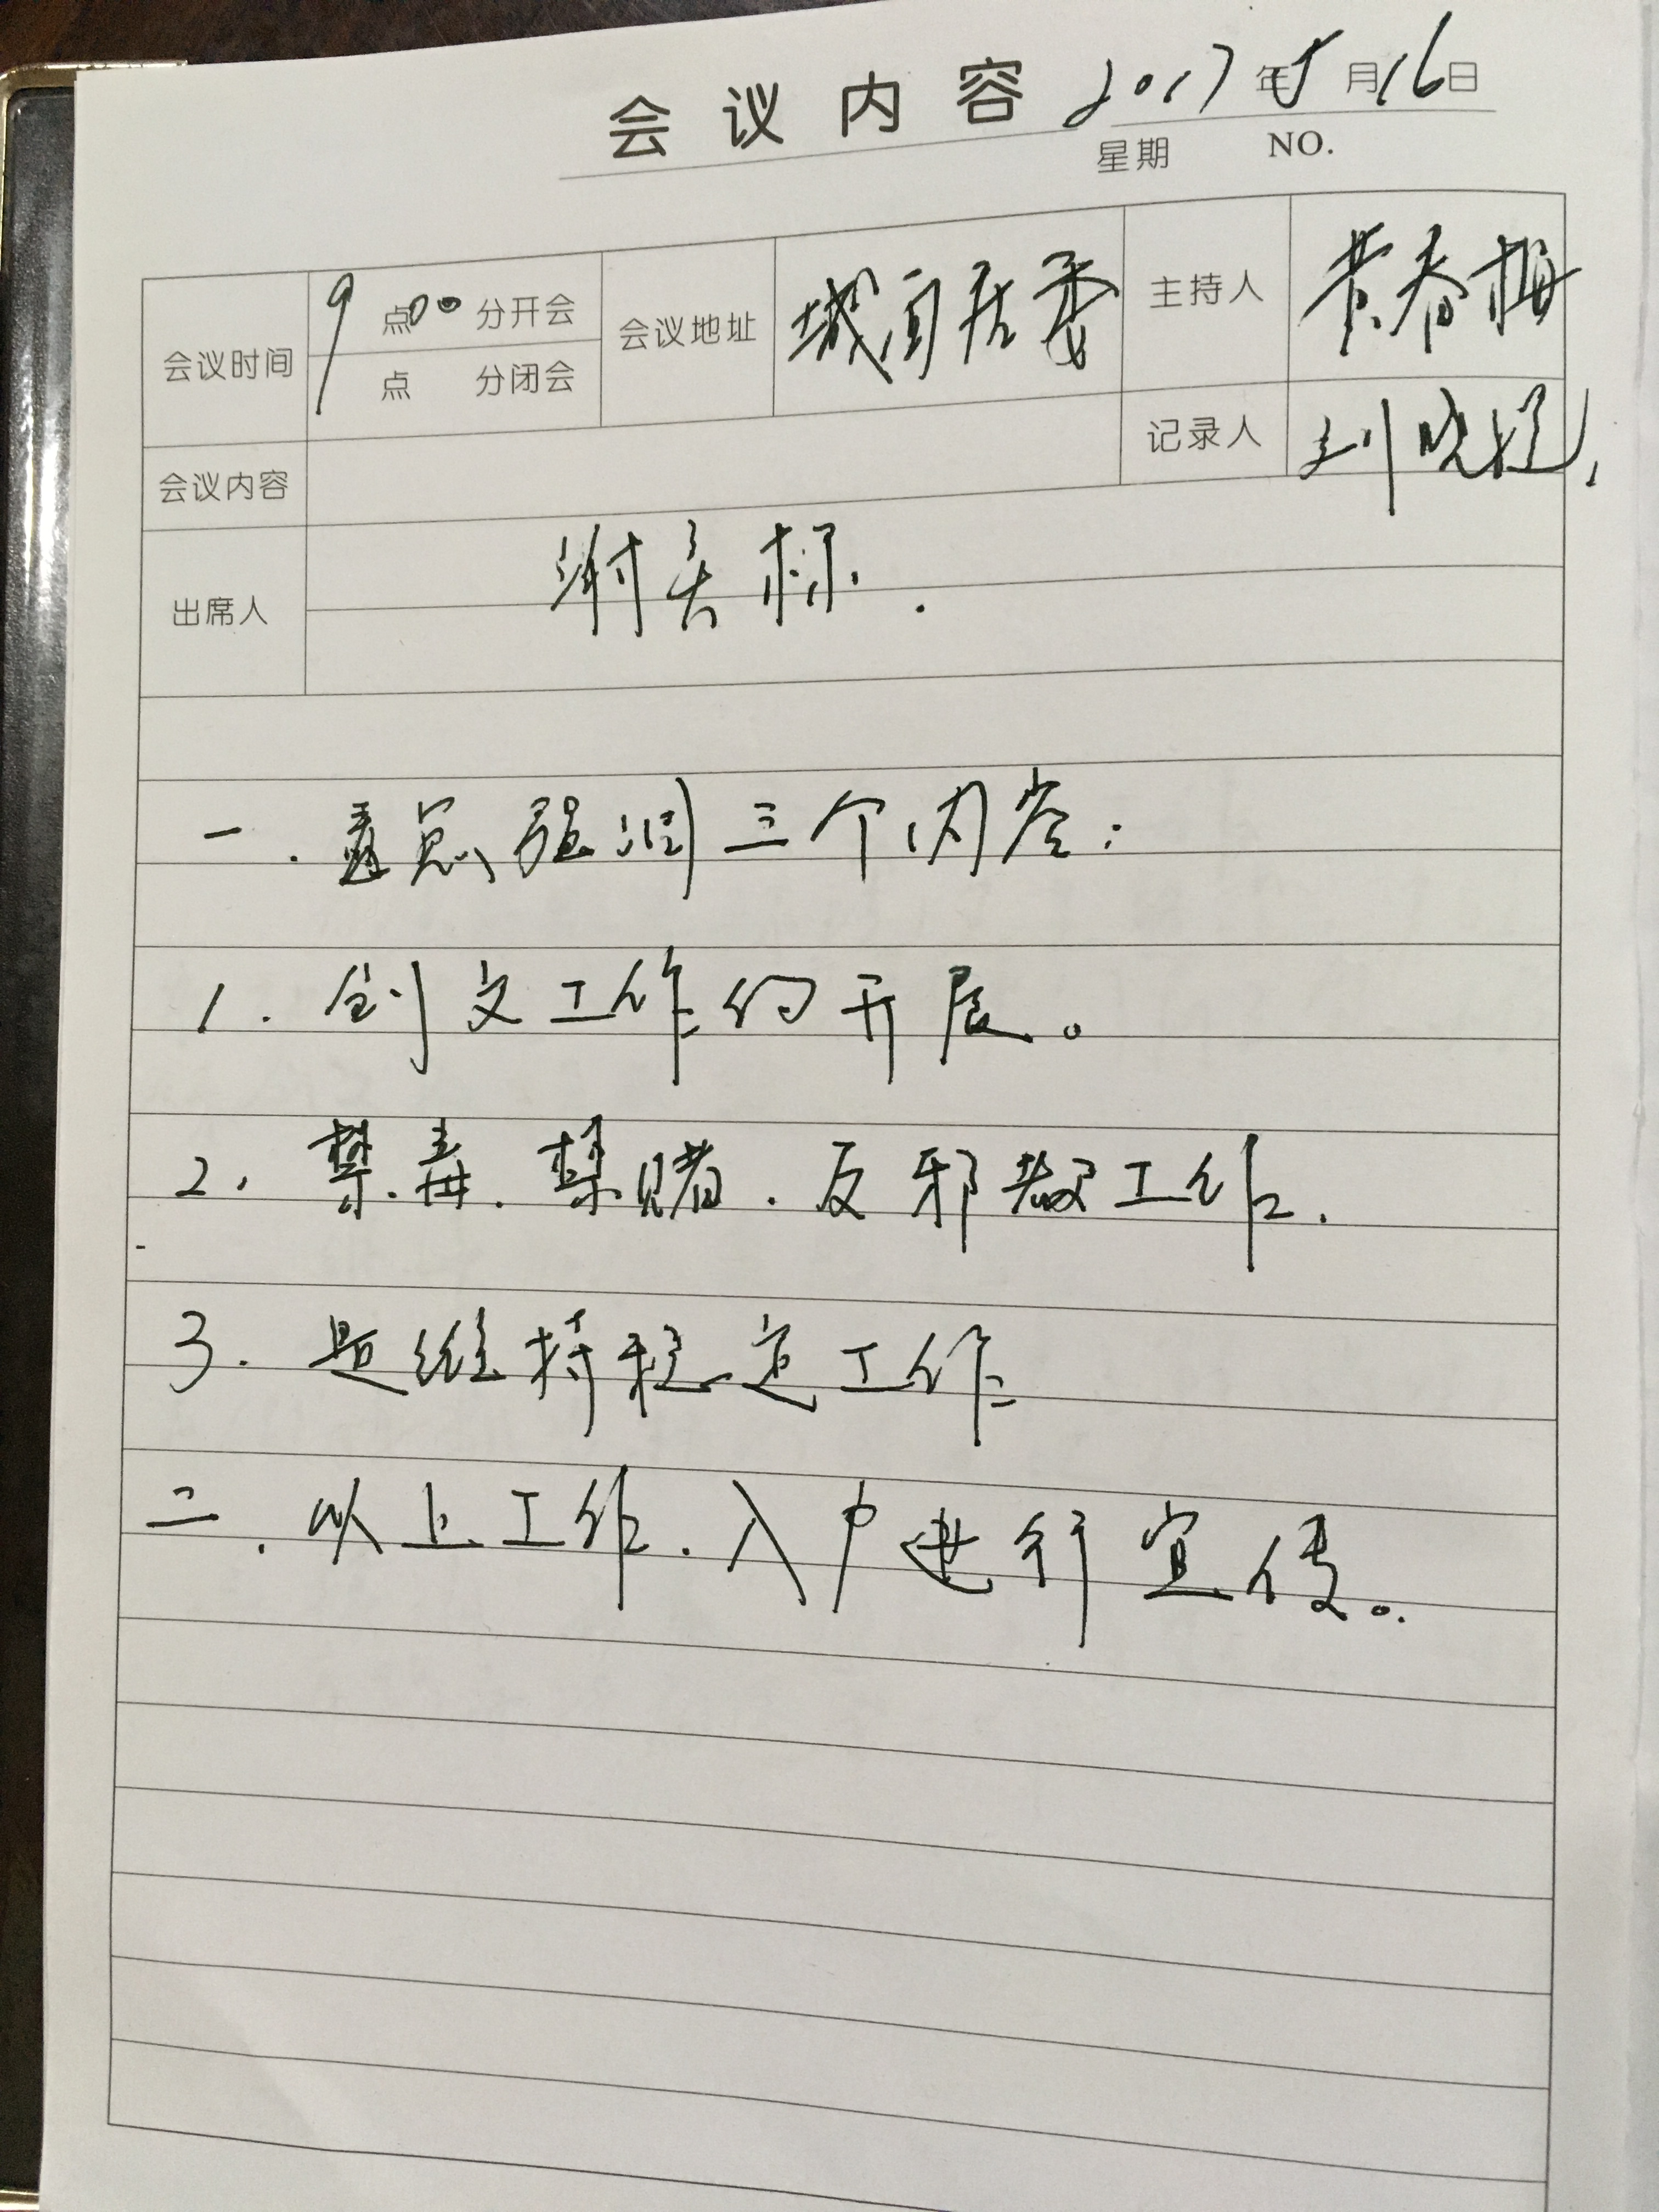 会议内容 2017年5月16日
星期 NO.
会议时间 9点00分开会
点 分闭会
会议地址 城西居委
主持人 黄春梅
记录人 刘晓
会议内容
出席人 谢 标.
一. 强调三个内容:
1. 创文工作的开展。
2. 禁毒.禁赌.反邪教工作.
3. 是维持稳定工作
二. 以上工作.入户进行宣传。